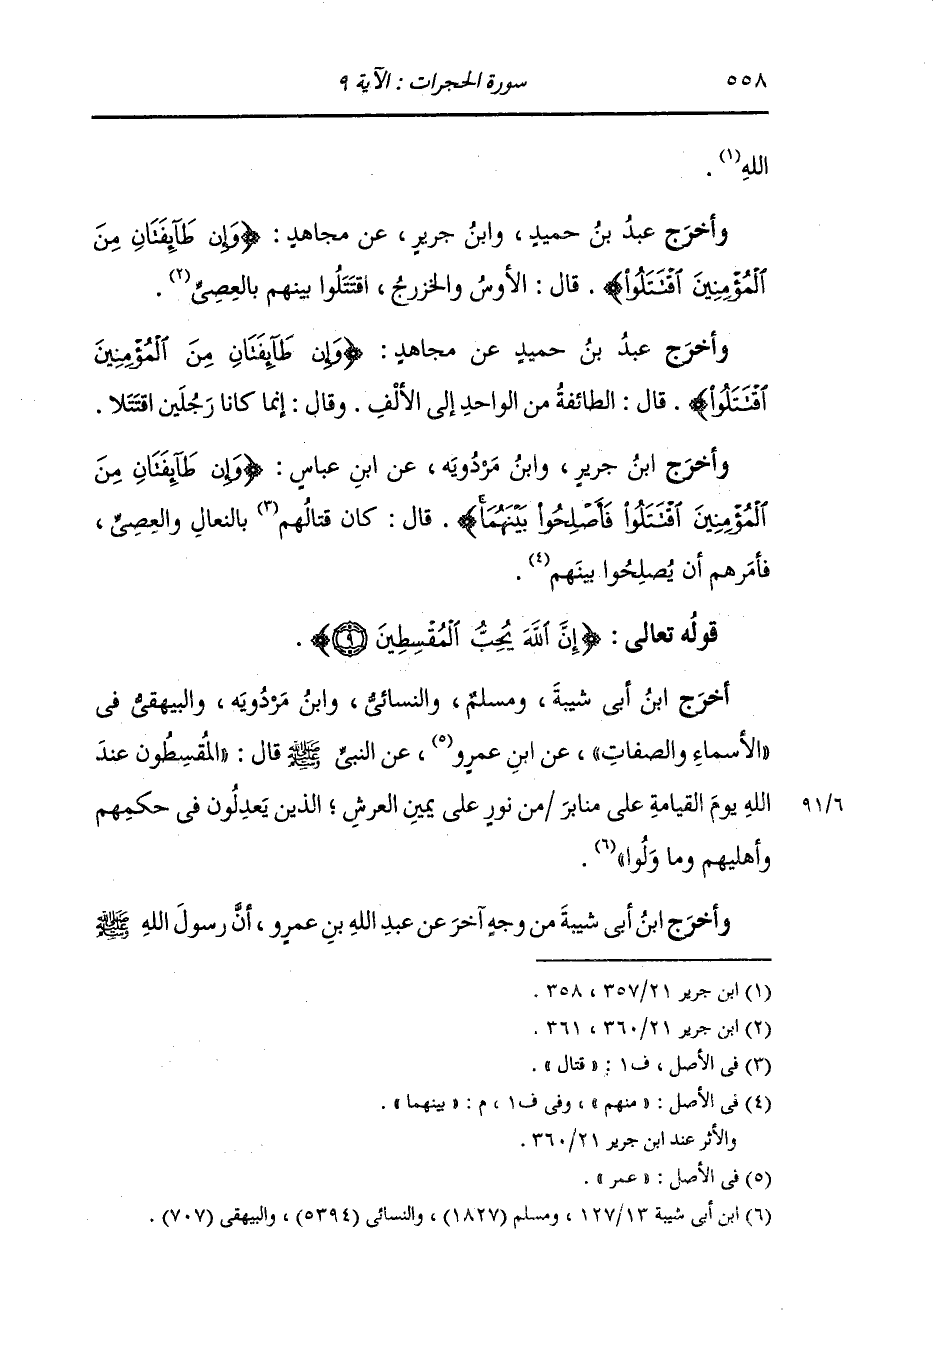 ٥٥٨ سورة الحجرات : الآية ٩
اللهِ(١) .
وأخرَج عبدُ بنُ حميدٍ ، وابنُ جريرٍ ، عن مجاهدٍ : ﴿وَإِن طَآئِفَتَانِ مِنَ
ٱلْمُؤْمِنِينَ ٱقْتَتَلُوا۟﴾ . قال : الأوسُ والخزرجُ ، اقتَتَلُوا بينهم بالعِصِىِّ(٢) .
وأخرَج عبدُ بنُ حميدٍ عن مجاهدٍ : ﴿وَإِن طَآئِفَتَانِ مِنَ ٱلْمُؤْمِنِينَ
ٱقْتَتَلُوا۟﴾ . قال : الطائفةُ من الواحدِ إلى الألْفِ . وقال : إنما كانا رَجُلَين اقتَتَلا .
وأخرَج ابنُ جريرٍ ، وابنُ مَرْدُويَه ، عن ابنِ عباسٍ : ﴿وَإِن طَآئِفَتَانِ مِنَ
ٱلْمُؤْمِنِينَ ٱقْتَتَلُوا۟ فَأَصْلِحُوا۟ بَيْنَهُمَاۖ﴾ . قال : كان قتالُهم(٣) بالنعالِ والعِصِىِّ ،
فأمَرهم أن يُصلِحُوا بينَهم(٤) .
قولُه تعالى : ﴿إِنَّ ٱللَّهَ يُحِبُّ ٱلْمُقْسِطِينَ ٩﴾ .
أخرَج ابنُ أبى شيبةَ ، ومسلمٌ ، والنسائىُّ ، وابنُ مَرْدُويَه ، والبيهقىُّ فى
«الأسماءِ والصفاتِ» ، عن ابنِ عمرٍو(٥) ، عن النبىِّ ﷺ قال : «المُقسِطُون عندَ
اللهِ يومَ القيامةِ على منابرَ /من نورٍ على يمينِ العرشِ ؛ الذين يَعدِلُون فى حكمِهم ٩١/٦
وأهليهم وما وَلُوا»(٦) .
وأخرَج ابنُ أبى شيبةَ من وجهٍ آخرَ عن عبدِ اللهِ بنِ عمرٍو ، أنَّ رسولَ اللهِ ﷺ
(١) ابن جرير ٣٥٧/٢١ ، ٣٥٨ .
(٢) ابن جرير ٣٦٠/٢١ ، ٣٦١ .
(٣) فى الأصل ، ف١ : « قتال » .
(٤) فى الأصل : « منهم » ، وفى ف١ ، م : « بينهما » .
والأثر عند ابن جرير ٣٦٠/٢١ .
(٥) فى الأصل : « عمر » .
(٦) ابن أبى شيبة ١٢٧/١٣ ، ومسلم (١٨٢٧) ، والنسائى (٥٣٩٤) ، والبيهقى (٧٠٧) .